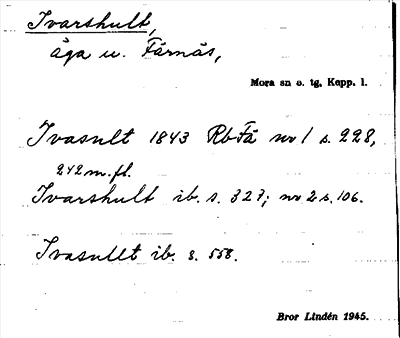 Ivarshult,
äga u. Färnäs,
Mora sn o. tg, Kopp. l.
Ivasult 1843 RbFä nr 1 s. 228,
242 m. fl.
Ivarshult ib. s. 327; nr 2 s. 106.
Ivasullt ib. s. 558.
Bror Lindén 1945.